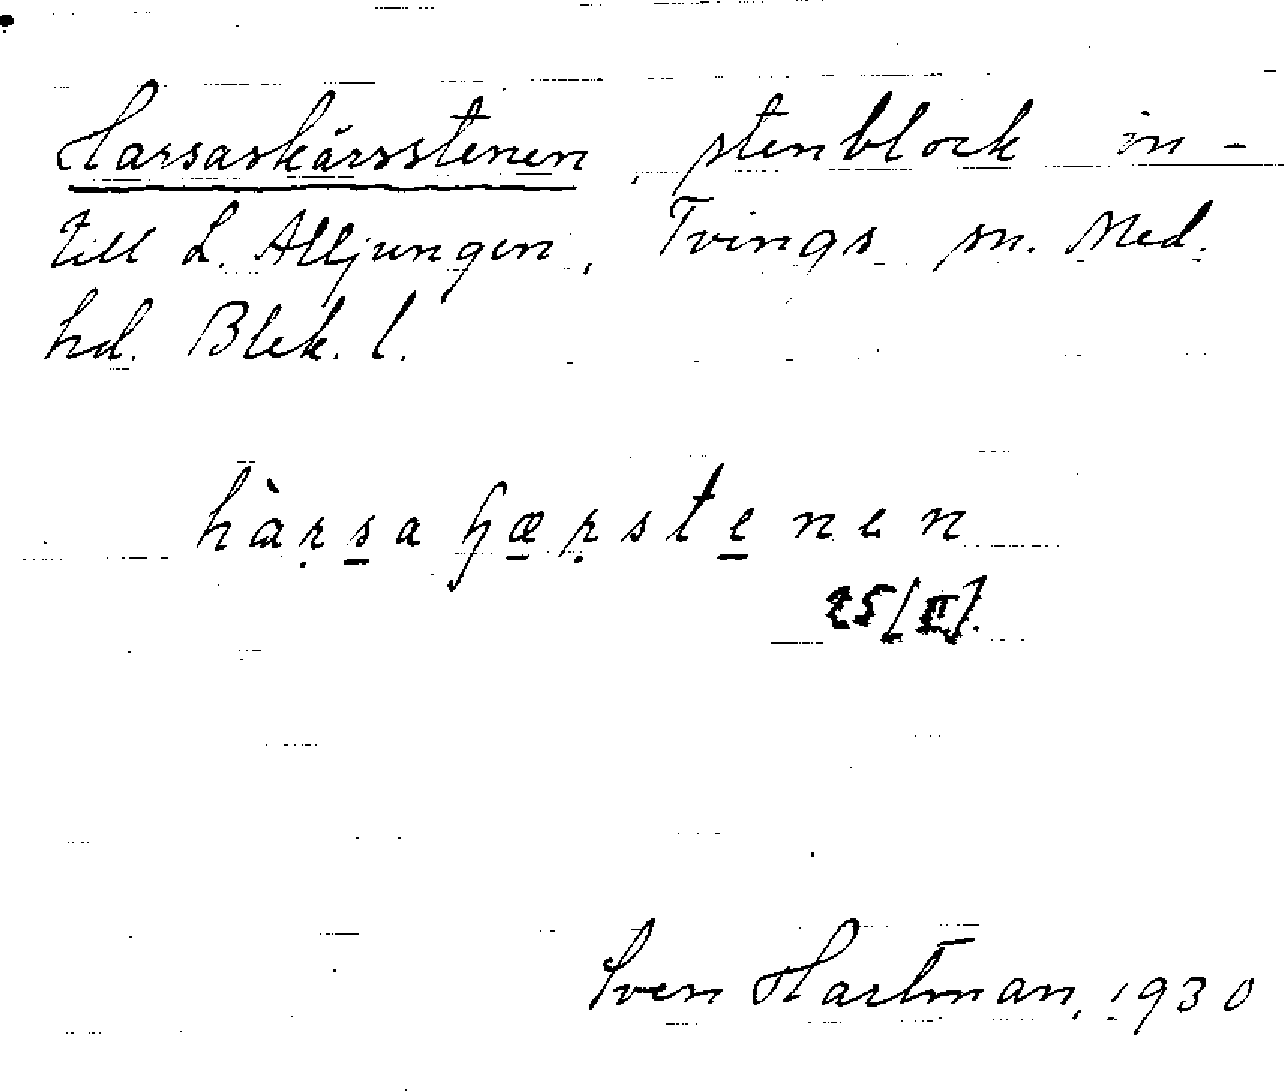 Harsaskärsstenen, stenblock in-
till L. Alljungen, Tvings sn. Med.
hd. Blek. l.
hàrsaꞕærstenen
25/II.
Sven Hartman, 1930